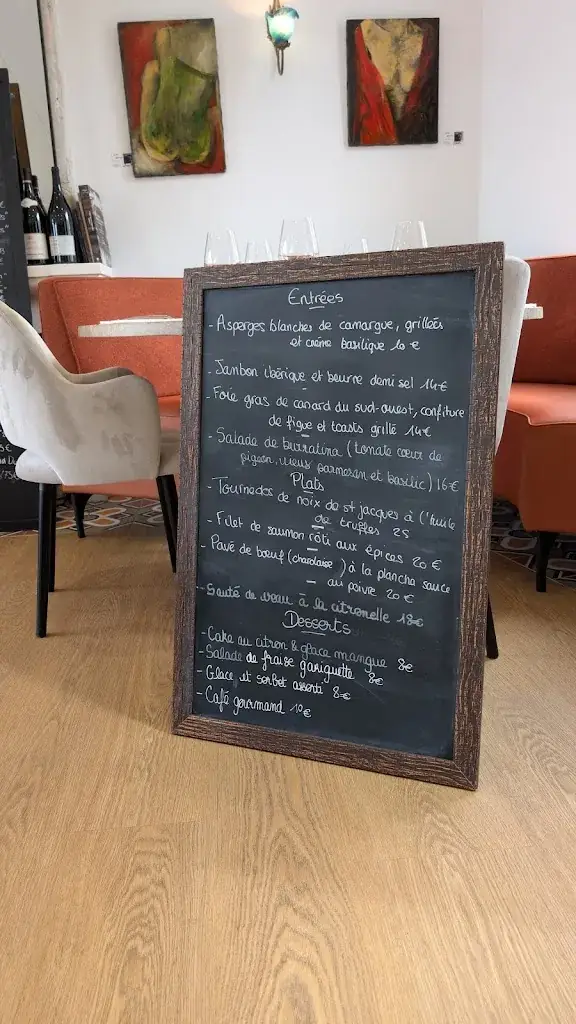 Entrées
- Asperges blanches de camargue, grillées
et crème basilique 10 €
- Jambon ibérique et beurre demi sel 14€
- Foie gras de canard du sud-ouest, confiture
de figue et toasts grillé 14€
- Salade de burratina (tomate cœur de
pigeon, vieux parmesan et basilic) 16€
Plats
- Tournedos de noix de st jacques à l'huile
de truffes 25
- Filet de saumon rôti aux épices 20 €
- Pavé de bœuf (charolaise) à la plancha sauce
au poivre 20 €
- Sauté de veau à la citronelle 18€
Desserts
- Cake au citron & glace mangue 8€
- Salade de fraise gariguette 8€
- Glace et sorbet assorti 8€
- Café gourmand 10€